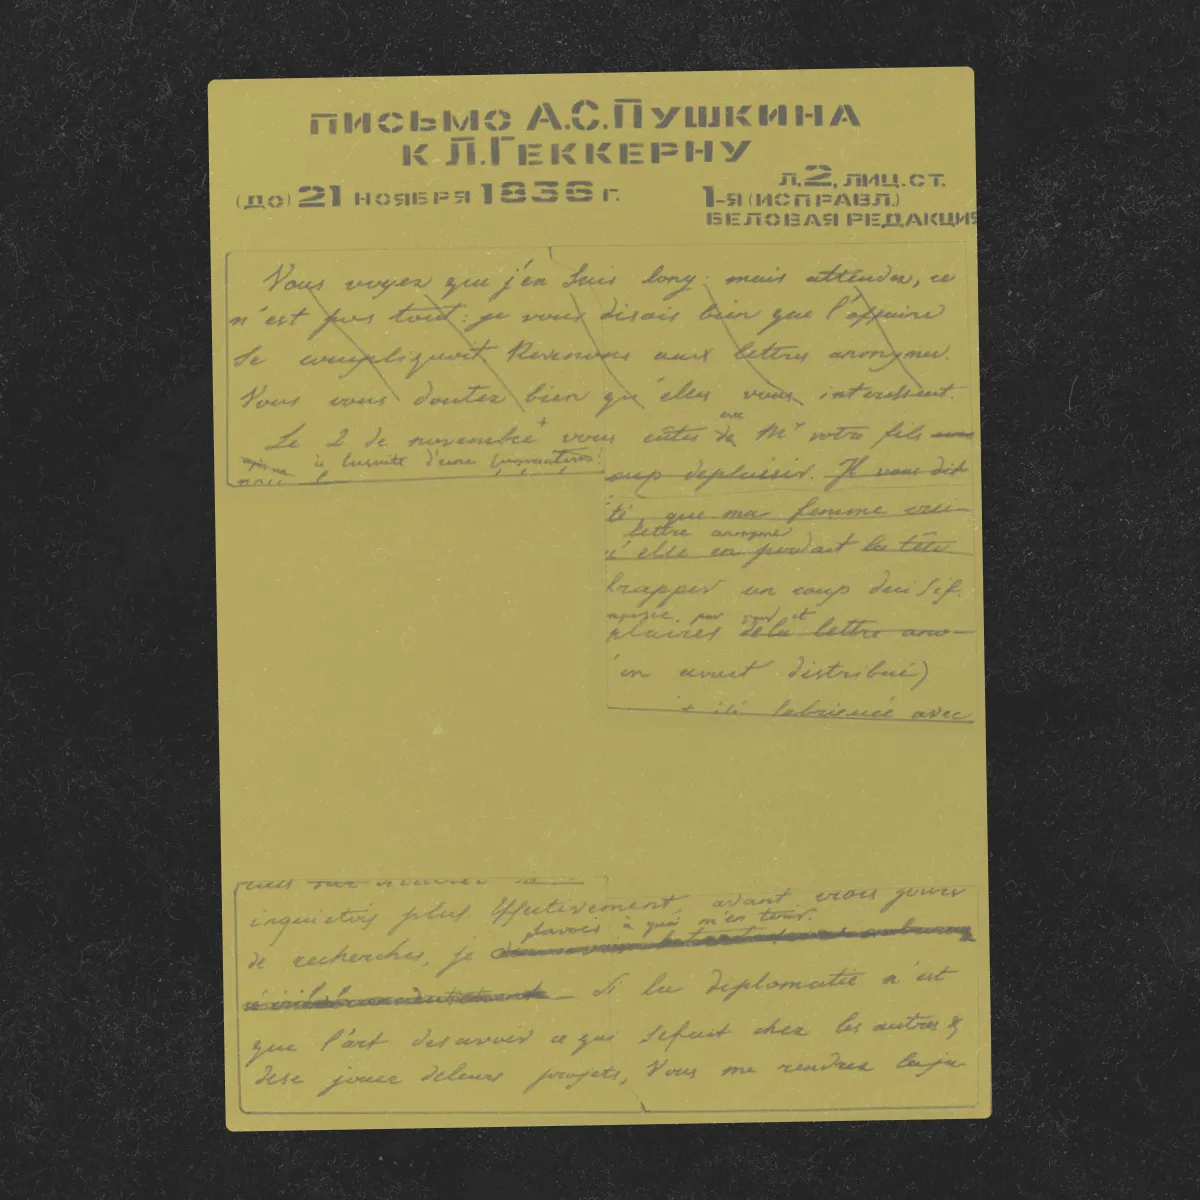 ПИСЬМО А.С.ПУШКИНА
К Л.ГЕККЕРНУ
(ДО) 21 НОЯБРЯ 1836 Г.
Л.2, ЛИЦ.СТ.
1-Я (ИСПРАВЛ.)
БЕЛОВАЯ РЕДАКЦИЯ
Vous voyez que j'en suis long: mais attendez, ce
n'est pas tout: je vous disais bien que l'affaire
se compliquoit Revenons aux lettres anonymes.
Vous vous doutez bien qu'elles vous interessent.
Le 2 de novembre vous eutes de Mr votre fils une
à la suite d'une
oup deplaisir. Il vous dit
té que ma femme
lettre anonyme
elle en perdait la tête
frapper un coup decisif.
par vous et
plaires de la lettre ano-
en avait distribué)
fabriquée avec
inquietois plus. Effectivement avant trois jours
savois à quoi m'en tenir.
de recherches, je
Si la diplomatie n'est
que l'art de savoir ce qui se fait chez les autres &
de se jouer de leurs projets, Vous me rendrez la ju-